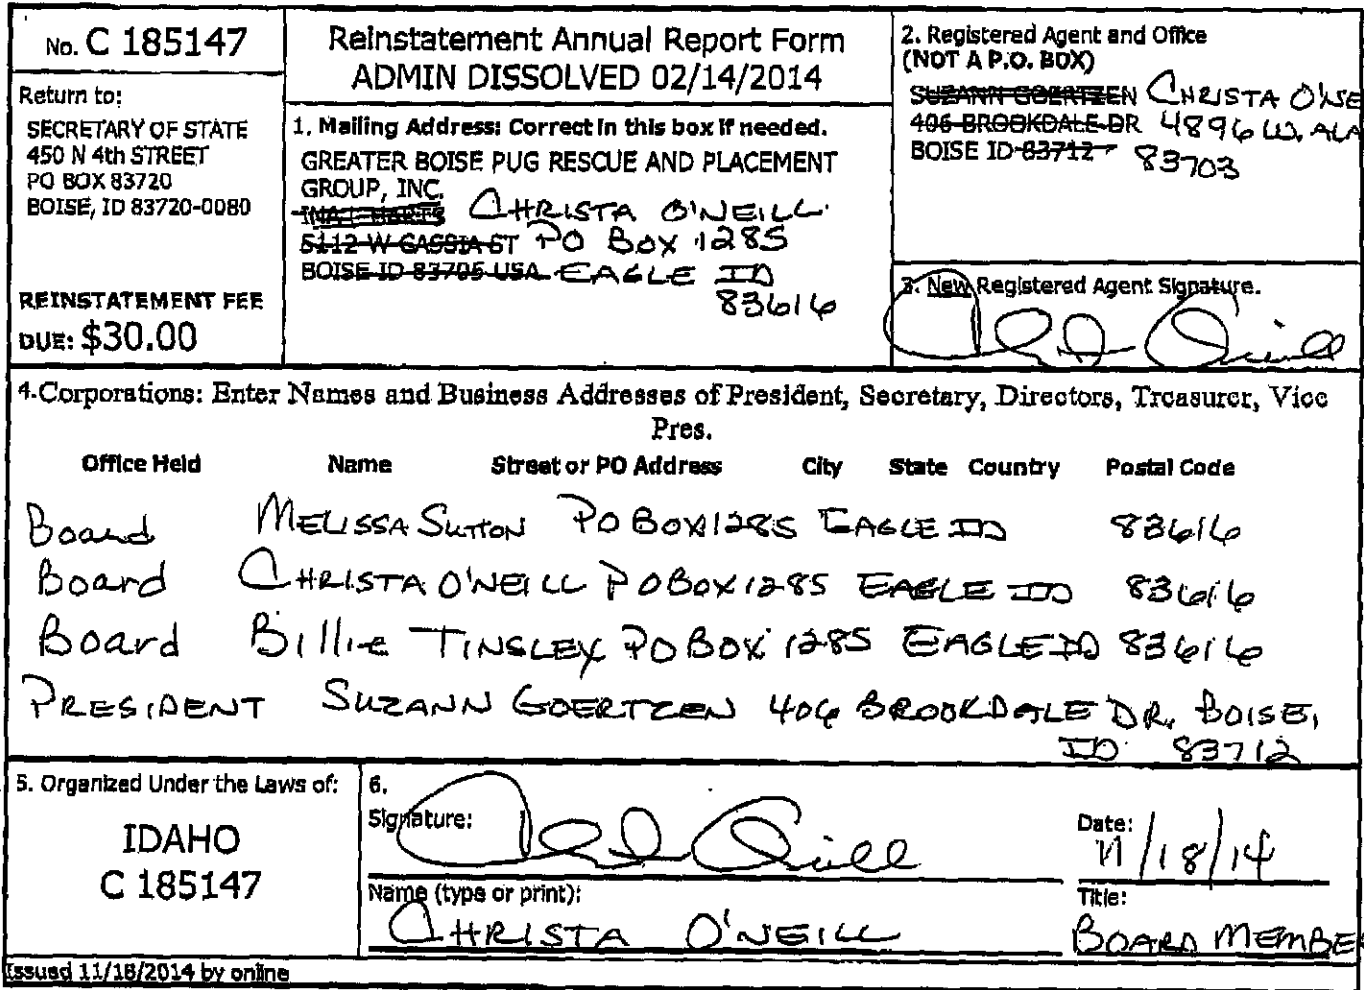 No. C 185147
Return to:
SECRETARY OF STATE
450 N 4th STREET
PO BOX 83720
BOISE, ID 83720-0080
REINSTATEMENT FEE
DUE: $30.00
Reinstatement Annual Report Form
ADMIN DISSOLVED 02/14/2014
1. Mailing Address: Correct in this box if needed.
GREATER BOISE PUG RESCUE AND PLACEMENT
GROUP, INC.
CHRISTA O'NEILL
5112 W CASSIA ST PO BOX 1285
BOISE ID 83705 USA EAGLE ID
83616
2. Registered Agent and Office
(NOT A P.O. BOX)
SUZANN GOERTZEN CHRISTA O'NE
406 BROOKDALE DR 4896 W. ALA
BOISE ID 83712 83703
3. New Registered Agent Signature.
4. Corporations: Enter Names and Business Addresses of President, Secretary, Directors, Treasurer, Vice
Pres.
Office Held Name Street or PO Address City State Country Postal Code
Board MELISSA SUTTON PO BOX 1285 EAGLE ID 83616
Board CHRISTA O'NEILL PO BOX 1285 EAGLE ID 83616
Board Billie TINSLEY PO BOX 1285 EAGLE ID 83616
PRESIDENT SUZANN GOERTZEN 406 BROOKDALE DR. BOISE,
ID 83712
5. Organized Under the Laws of:
IDAHO
C 185147
6.
Signature:
Date: 11/18/14
Name (type or print):
CHRISTA O'NEILL
Title:
BOARD MEMBE
Issued 11/18/2014 by online